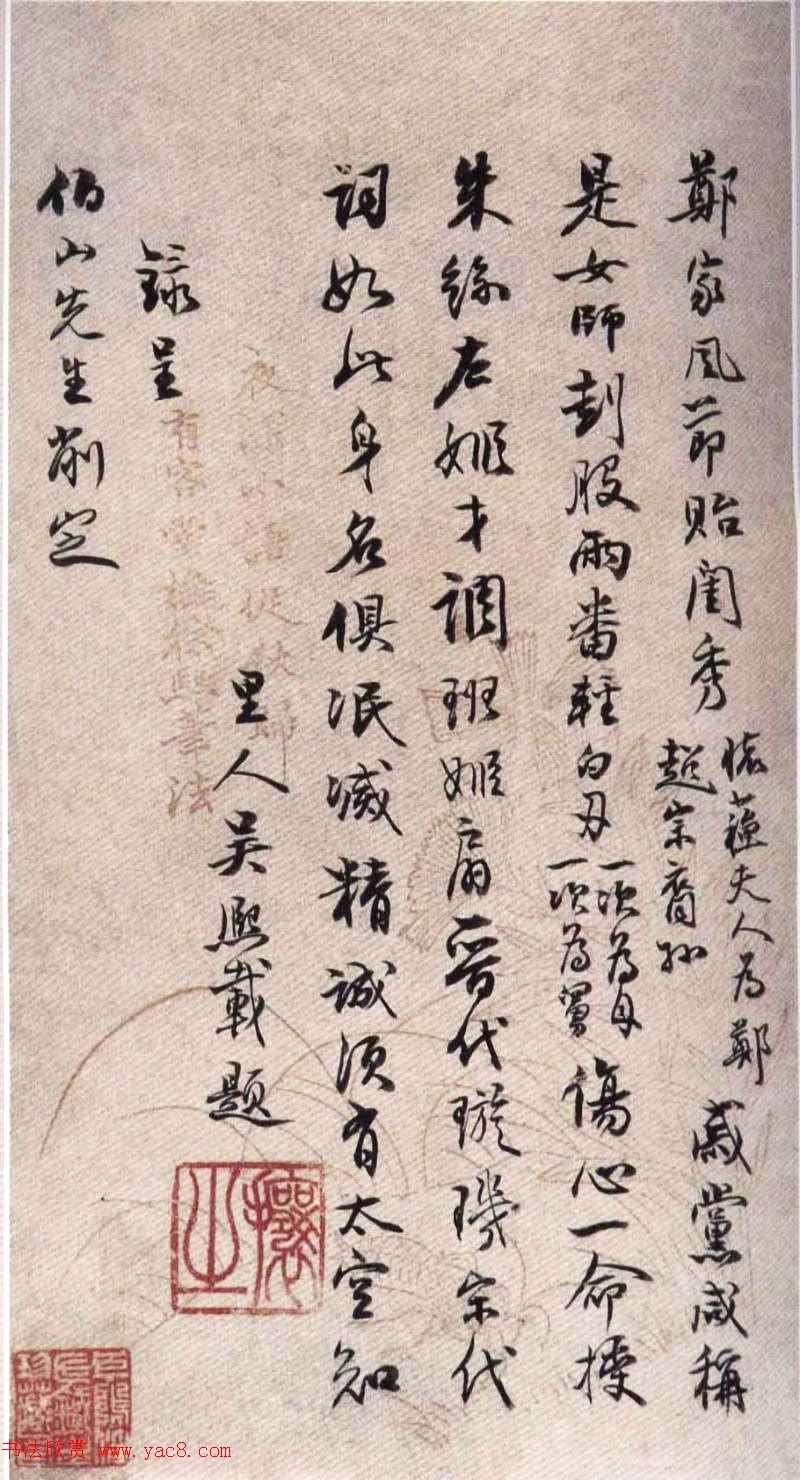 鄭家風節貽閨秀
懷蘐夫人為鄭
趙宗裔孫
戚黨咸稱
是女師刲股兩番輕白刃
一次為母
一次為舅
傷心一命授
朱絲左姬才調班姬扇晉代璇璣宋代
詞如此身名俱泯滅精誠須有太空知
里人吳熙載題
錄呈
伯山先生削定
攘之
書法欣賞 www.yac8.com